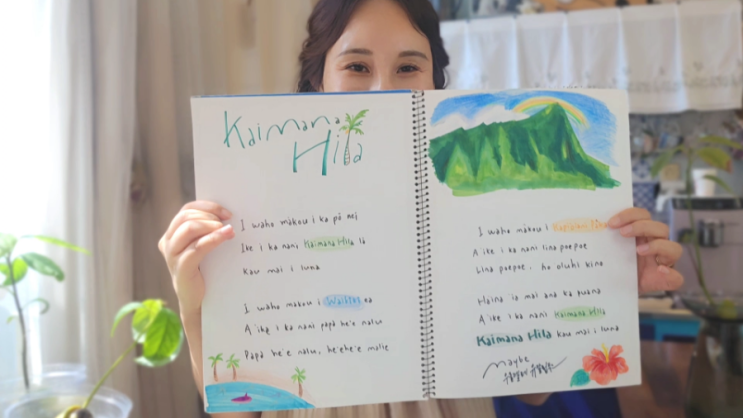 Kaimana
Hila
I waho mākou i ka pō nei
Ike i ka nani Kaimana Hila lā
Kau mai i luna
I waho mākou i Waikiki ea
A'ike i ka nani papa he'e nalu
Papa he'e nalu, he'ehe'e malie
I waho mākou i
A ike i ka nani lina poepoe
Lina poepoe, ho oluhi kino
Haina ia mai ana ka puana
A'ike i ka nani Kaimana Hila
Kaimana Hila kau mai i luna
Maybe